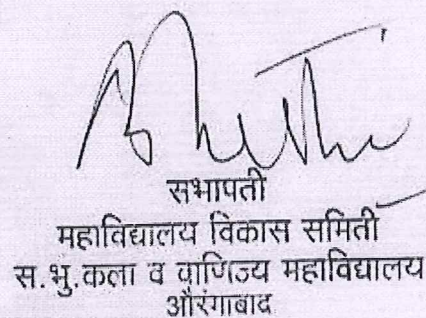 सभापती
महाविद्यालय विकास समिती
स.भु.कला व वाणिज्य महाविद्यालय
औरंगाबाद